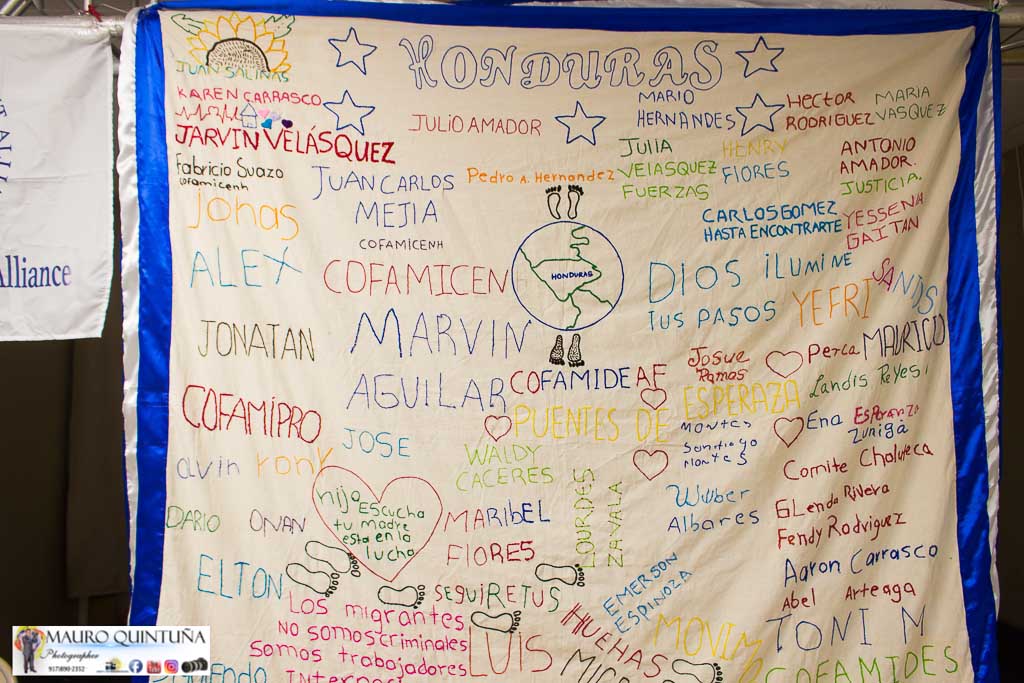 Alliance
HONDURAS
JUAN SALINAS
KAREN CARRASCO
JARVIN VELÁSQUEZ
Fabricio Suazo
COFAMICENH
JONAS
ALEX
JONATAN
COFAMIPRO
alvin rony
DARIO ONAN
ELTON
JULIO AMADOR
JUAN CARLOS
MEJIA
COFAMICENH
COFAMICEN
MARVIN
AGUILAR
JOSE
hijo
ESCUCHA
tu madre
esta en la
lucha
Pedro A. Hernandez
HONDURAS
COFAMIDEAF
PUENTES DE ESPERAZA
WALDY
CACERES
MARIBEL
FLORES
LOURDES
ZAVALA
MARIO
HERNANDES
HECTOR
RODRIGUEZ
MARIA
VASQUEZ
JULIA
VELASQUEZ
FUERZAS
HENRY
FLORES
ANTONIO
AMADOR.
JUSTICIA.
CARLOS GOMEZ
HASTA ENCONTRARTE
YESSENA
GAITAN
DIOS ILUMINE
TUS PASOS
YEFRI
SANDS
JOSUE
RAMOS
Perla
MAURICIO
Landis Reyes
MONTES
Santiago
MONTES
Ena Esperanza
Zuniga
Comite Choluteca
Wilber
Albares
GLenda Rivera
Fendy Rodriguez
Aaron Carrasco
Abel Arteaga
EMERSON
ESPINOZA
TONI M
COFAMIDES
SEGUIRE TUS
HUELHAS
MOVIM
LUIS
Los migrantes
NO SOMOS criminales
Somos trabajadores
MAURO QUINTUÑA
Photographer
917)890-2352